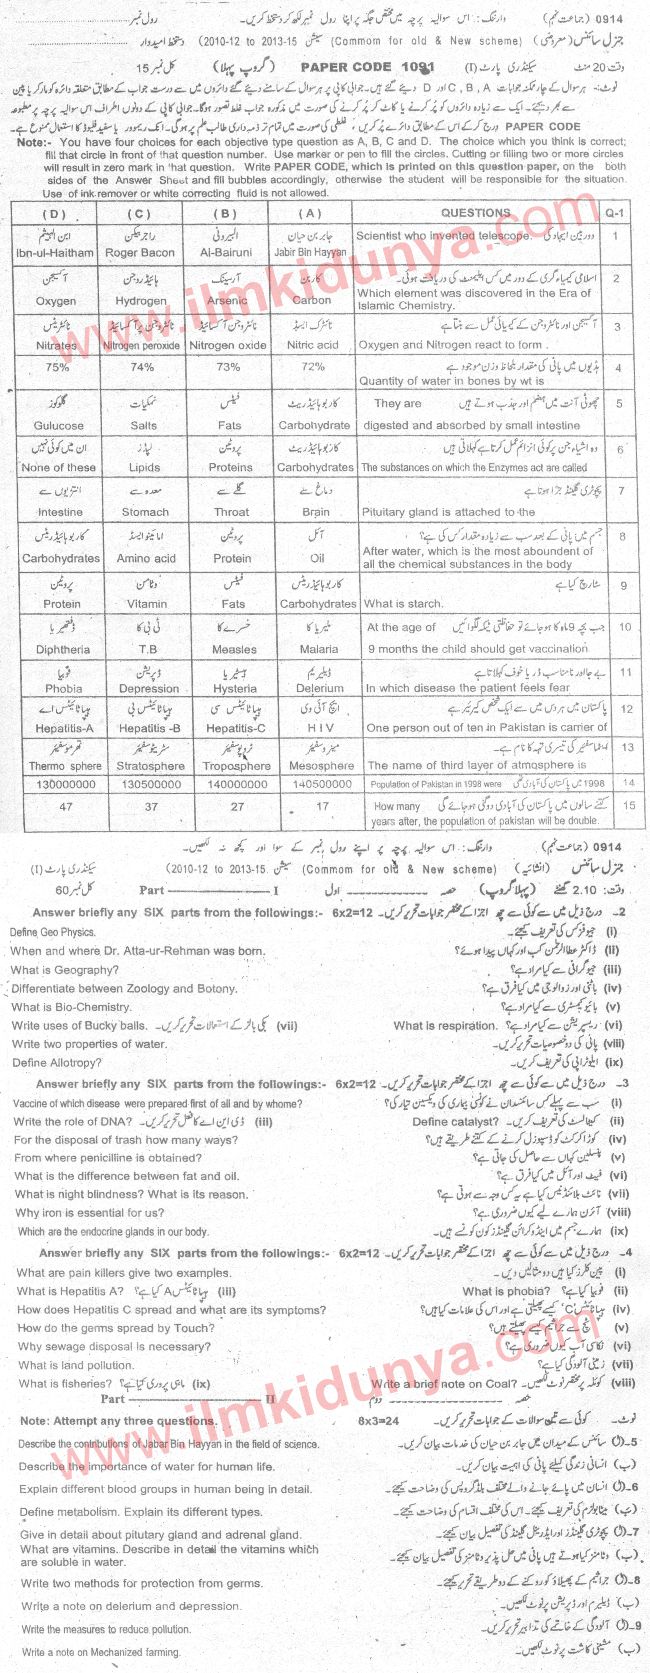 0914 (جماعت نہم) وارننگ: اس سوالیہ پرچہ میں مختص جگہ پر اپنا رول نمبر لکھ کر دستخط کریں۔ رول نمبر
جنرل سائنس (معروضی) (Commom for old & New scheme) سیشن 2010-12 to 2013-15 دستخط امیدوار
وقت 20 منٹ سیکنڈری پارٹ (I) PAPER CODE 1091 (گروپ پہلا) کل نمبر 15
Note:- You have four choices for each objective type question as A, B, C and D. The choice which you think is correct;
fill that circle in front of that question number. Use marker or pen to fill the circles. Cutting or filling two or more circles
will result in zero mark in that question. Write PAPER CODE, which is printed on this question paper, on the both
sides of the Answer Sheet and fill bubbles accordingly, otherwise the student will be responsible for the situation.
Use of ink remover or white correcting fluid is not allowed.
(D) (C) (B) (A) QUESTIONS Q-1
ابن الہیثم راجر بیکن البیرونی جابر بن حیان دوربین ایجاد کی
Ibn-ul-Haitham Roger Bacon Al-Bairuni Jabir Bin Hayyan Scientist who invented telescope. 1
آکسیجن ہائیڈروجن آرسینک کاربن اسلامی کیمیاء گری کے دور میں کس ایلیمنٹ کی دریافت ہوئی۔ 2
Oxygen Hydrogen Arsenic Carbon Which element was discovered in the Era of
Islamic Chemistry.
نائٹریٹس نائٹروجن پرآکسائیڈ نائٹروجن آکسائیڈ نائٹرک ایسڈ آکسیجن اور نائٹروجن کے کیمیائی عمل سے بنتا ہے 3
Nitrates Nitrogen peroxide Nitrogen oxide Nitric acid Oxygen and Nitrogen react to form .
75% 74% 73% 72% ہڈیوں میں پانی کی مقدار بلحاظ وزن موجود ہے 4
Quantity of water in bones by wt is
گلوکوز نمکیات فیٹس کاربوہائیڈریٹ They are چھوٹی آنت میں ہضم اور جذب ہوتے ہیں 5
Gulucose Salts Fats Carbohydrate digested and absorbed by small intestine
ان میں کوئی نہیں لپڈز پروٹین کاربوہائیڈریٹ وہ اشیاء جن پر کوئی انزائم عمل کرتا ہے کہلاتی ہیں 6
None of these Lipids Proteins Carbohydrates The substances on which the Enzymes act are called
انتڑیوں سے معدہ سے گلے سے دماغ سے پچوٹری گلینڈ جڑا ہوتا ہے 7
Intestine Stomach Throat Brain Pituitary gland is attached to the
کاربوہائیڈریٹس امائینو ایسڈ پروٹین آئل جسم میں پانی کے بعد سب سے زیادہ مقدار کس کی ہے؟ 8
Carbohydrates Amino acid Protein Oil After water, which is the most aboundent of
all the chemical substances in the body
پروٹین وٹامن فیٹس کاربوہائیڈریٹس سٹارچ کیا ہے 9
Protein Vitamin Fats Carbohydrates What is starch.
ڈفتھیریا ٹی بی کا خسرے کا ملیریا کا At the age of جب بچہ 9 ماہ کا ہو جائے تو حفاظتی ٹیکہ لگوائیں 10
Diphtheria T.B Measles Malaria 9 months the child should get vaccination
فوبیا ڈپریشن ہسٹیریا ڈیلیریم بے جا اور نامناسب ڈر یا خوف کہلاتا ہے 11
Phobia Depression Hysteria Delerium In which disease the patient feels fear
ہیپاٹائیٹس اے ہیپاٹائیٹس بی ہیپاٹائیٹس سی ایچ آئی وی پاکستان میں ہر دس میں سے ایک شخص کیریئر ہے 12
Hepatitis-A Hepatitis -B Hepatitis-C H I V One person out of ten in Pakistan is carrier of
تھرموسفیئر سٹریٹوسفیئر ٹروپوسفیئر میزوسفیئر اٹماسفیئر کی تیسری تہہ کا نام ہے۔ 13
Thermo sphere Stratosphere Troposphere Mesosphere The name of third layer of atmosphere is
130000000 130500000 140000000 140500000 Population of Pakistan in 1998 were 1998 میں پاکستان کی آبادی تھی 14
47 37 27 17 How many کتنے سالوں میں پاکستان کی آبادی دوگنی ہو جائے گی 15
years after, the population of pakistan will be double.
0914 (جماعت نہم) وارننگ: اس سوالیہ پرچہ پر اپنے رول نمبر کے سوا اور کچھ نہ لکھیں۔
جنرل سائنس (انشائیہ) (Commom for old & New scheme) سیشن 2010-12 to 2013-15. سیکنڈری پارٹ (I)
وقت: 2.10 گھنٹے (پہلا گروپ) حصہ اول Part I کل نمبر 60
Answer briefly any SIX parts from the followings:- 6x2=12 2۔ درج ذیل میں سے کوئی سے چھ اجزا کے مختصر جوابات تحریر کریں۔
Define Geo Physics. (i) جیو فزکس کی تعریف کیجئے۔
When and where Dr. Atta-ur-Rehman was born. (ii) ڈاکٹر عطاالرحمٰن کب اور کہاں پیدا ہوئے؟
What is Geography? (iii) جیوگرافی سے کیا مراد ہے؟
Differentiate between Zoology and Botony. (iv) باٹنی اور زوالوجی میں کیا فرق ہے؟
What is Bio-Chemistry. (v) بائیو کیمسٹری سے کیا مراد ہے؟
Write uses of Bucky balls. (vii) بکی بالز کے استعمالات تحریر کریں۔ What is respiration. (vi) ریسپریشن سے کیا مراد ہے؟
Write two properties of water. (viii) پانی کی دو خصوصیات تحریر کریں۔
Define Allotropy? (ix) ایلوٹراپی کی تعریف کریں۔
Answer briefly any SIX parts from the followings:- 6x2=12 3۔ درج ذیل میں سے کوئی سے چھ اجزا کے مختصر جوابات تحریر کریں۔
Vaccine of which disease were prepared first of all and by whome? (i) سب سے پہلے کس سائنسدان نے کونسی بیماری کی ویکسین تیار کی؟
Write the role of DNA? (iii) ڈی این اے کا فعل تحریر کریں۔ Define catalyst? (ii) کیٹالسٹ کی تعریف کریں۔
For the disposal of trash how many ways? (iv) کوڑا کرکٹ کو ڈسپوزل کرنے کے کتنے طریقے ہیں؟
From where penicilline is obtained? (v) پنسلین کہاں سے حاصل کی جاتی ہے؟
What is the difference between fat and oil. (vi) فیٹ اور آئل میں کیا فرق ہے؟
What is night blindness? What is its reason. (vii) نائٹ بلائنڈنیس کیا ہے یہ کس وجہ سے ہوتی ہے؟
Why iron is essential for us? (viii) آئرن ہمارے لیے کیوں ضروری ہے؟
Which are the endocrine glands in our body. (ix) ہمارے جسم میں اینڈوکرائن گلینڈز کون کونسے ہیں۔
Answer briefly any SIX parts from the followings:- 6x2=12 4۔ درج ذیل میں سے کوئی سے چھ اجزا کے مختصر جوابات تحریر کریں۔
What are pain killers give two examples. (i) پین کلرز کیا ہیں دو مثالیں دیں۔
What is Hepatitis A? (iii) ہیپاٹائیٹس A کیا ہے؟ What is phobia? (ii) فوبیا کیا ہے؟
How does Hepatitis C spread and what are its symptoms? (iv) ہیپاٹائیٹس 'C' کیسے پھیلتی ہے اور اس کی علامات کیا ہیں؟
How do the germs spread by Touch? (v) ٹچ سے جراثیم کیسے پھیلتے ہیں؟
Why sewage disposal is necessary? (vi) نکاسی آب کیوں ضروری ہے؟
What is land pollution. (vii) زمینی آلودگی کیا ہے؟
What is fisheries? (ix) ماہی پروری کیا ہے؟ Write a brief note on Coal? (viii) کوئلہ پر مختصر نوٹ لکھیں۔
Part II حصہ دوم
Note: Attempt any three questions. 8x3=24 نوٹ۔ کوئی سے تین سوالات کے جوابات تحریر کریں۔
Describe the contributions of Jabar Bin Hayyan in the field of science. 5۔ (ا) سائنس کے میدان میں جابر بن حیان کی خدمات بیان کریں۔
Describe the importance of water for human life. (ب) انسانی زندگی کیلئے پانی کی اہمیت بیان کریں۔
Explain different blood groups in human being in detail. 6۔ (ا) انسان میں پائے جانے والے مختلف بلڈ گروپس کی وضاحت کیجئے۔
Define metabolism. Explain its different types. (ب) میٹابولزم کی تعریف کیجئے۔ اس کی مختلف اقسام کی وضاحت کیجئے۔
Give in detail about pitutary gland and adrenal gland. 7۔ (ا) پچوٹری گلینڈز اور ایڈرینل گلینڈ کی تفصیل بیان کیجئے۔
What are vitamins. Describe in detail the vitamins which (ب) وٹامنز کیا ہوتے ہیں پانی میں حل پذیر وٹامنز کی تفصیل بیان کیجئے۔
are soluble in water.
Write two methods for protection from germs. 8۔ (ا) جراثیم کے پھیلاؤ کو روکنے کے دو طریقے تحریر کیجئے۔
Write a note on delerium and depression. (ب) ڈیلیریم اور ڈپریشن پر نوٹ لکھیں۔
Write the measures to reduce pollution. 9۔ (ا) آلودگی کے خاتمے کی تدابیر تحریر کریں۔
Write a note on Mechanized farming. (ب) مشینی کاشت پر نوٹ لکھیں۔
www.ilmkidunya.com
www.ilmkidunya.com